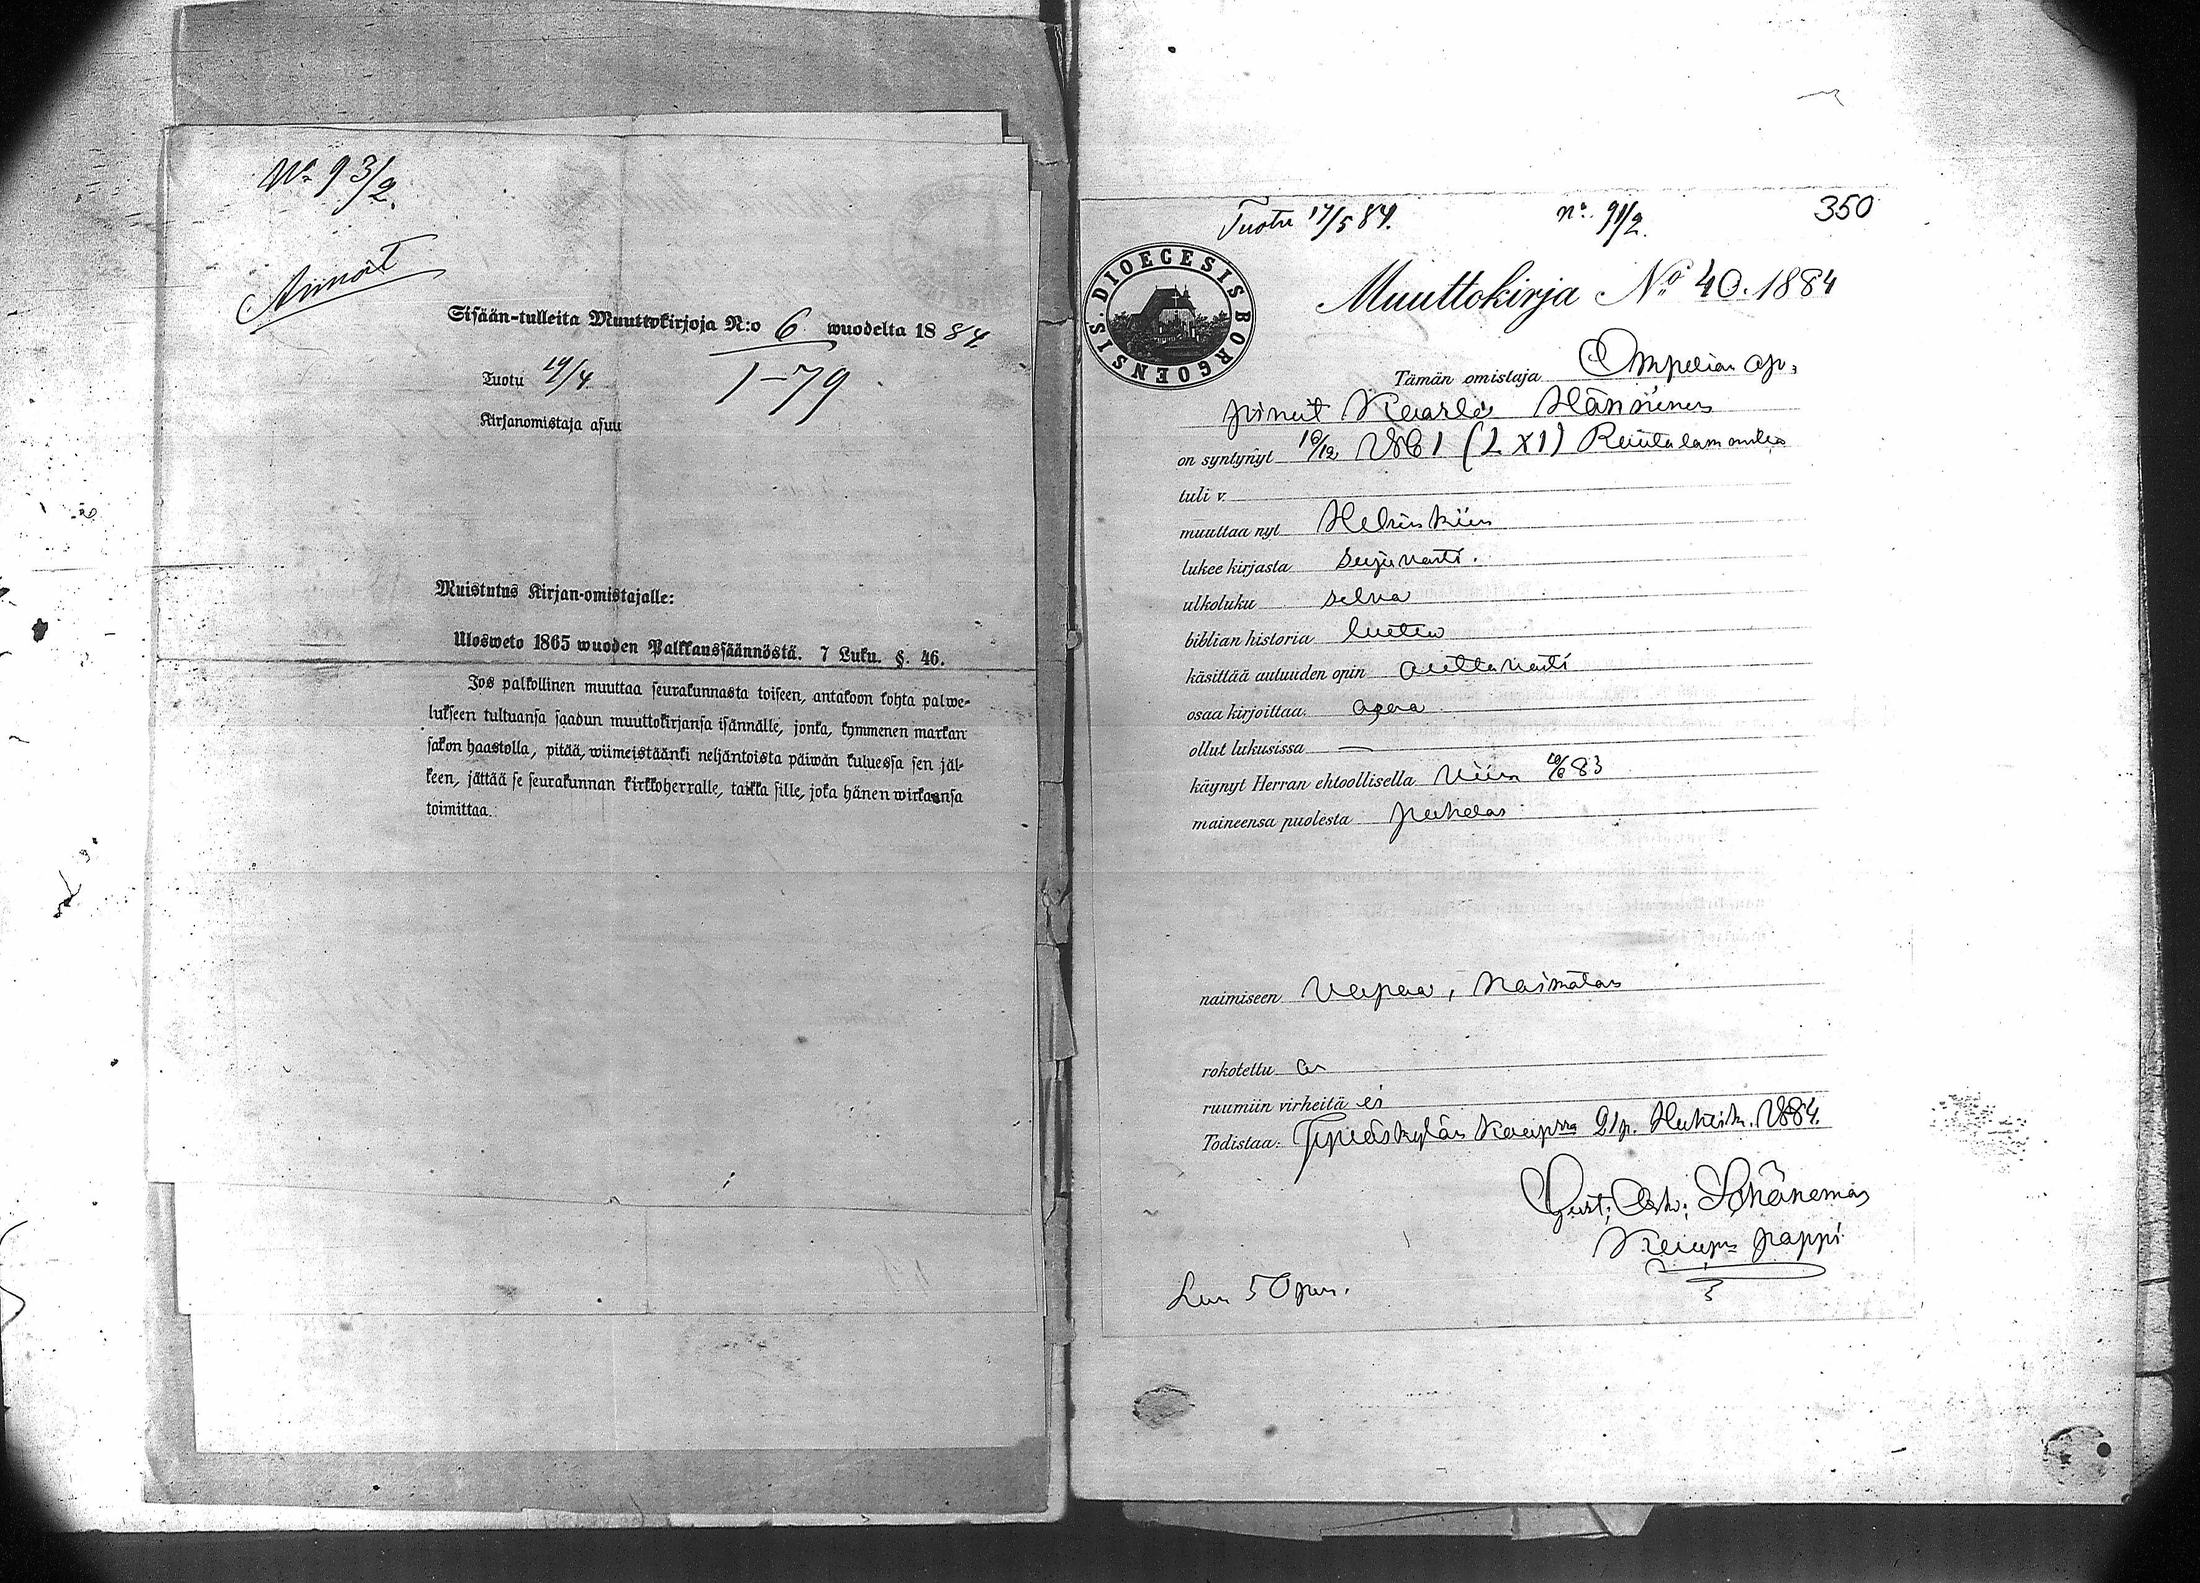 No 93/2.
Annot
Sisään-tulleita Muuttokirjoja N:o 6 wuodelta 1884
1–79
Tuotu 19/4
Kirjanomistaja asuu
Muistutus Kirjan-omistajalle:
Ulosweto 1865 wuoden Palkkaussäännöstä. 7 Luku. §. 46.
Jos palkollinen muuttaa seurakunnasta toiseen, antakoon kohta palwe-
lukseen tultuansa saadun muuttokirjansa isännälle, jonka, kymmenen markan
sakon haastolla, pitää, wiimeistäänki neljäntoista päiwän kuluessa sen jäl-
keen, jättää se seurakunnan kirkkoherralle, taikka sille, joka hänen wirkaansa
toimittaa.
Tuotu 17/5 84. no. 91/2. 350
DIOECESIS BORGOENSIS.
Muuttokirja No 40. 1884
Tämän omistaja Ompelian op.
Kaarlo Hänninen
on syntynyt 10/12 1861 (LXI) Rautalammilla
tuli v.
muuttaa nyt Helsinkiin
lukee kirjasta sujuvasti.
ulkoluku selvä
biblian historia luettu
käsittää autuuden opin auttavasti
osaa kirjoittaa. osaa
ollut lukusissa —
käynyt Herran ehtoollisella viim 83
maineensa puolesta puhdas
naimiseen vapaa, naimatoin
rokotettu on
ruumiin virheitä ei
Todistaa: 21 p. Huhtik. 1884.
Gust. Ad. Schöneman
Kaup. pappi
Lun 50 pen.